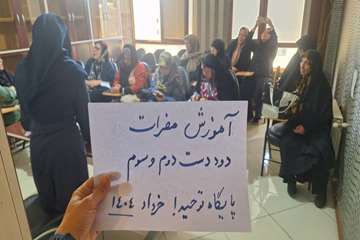 آموزش مضرات
دود دست دوم و سوم
پایگاه توحید۱ خرداد ۱۴۰۴